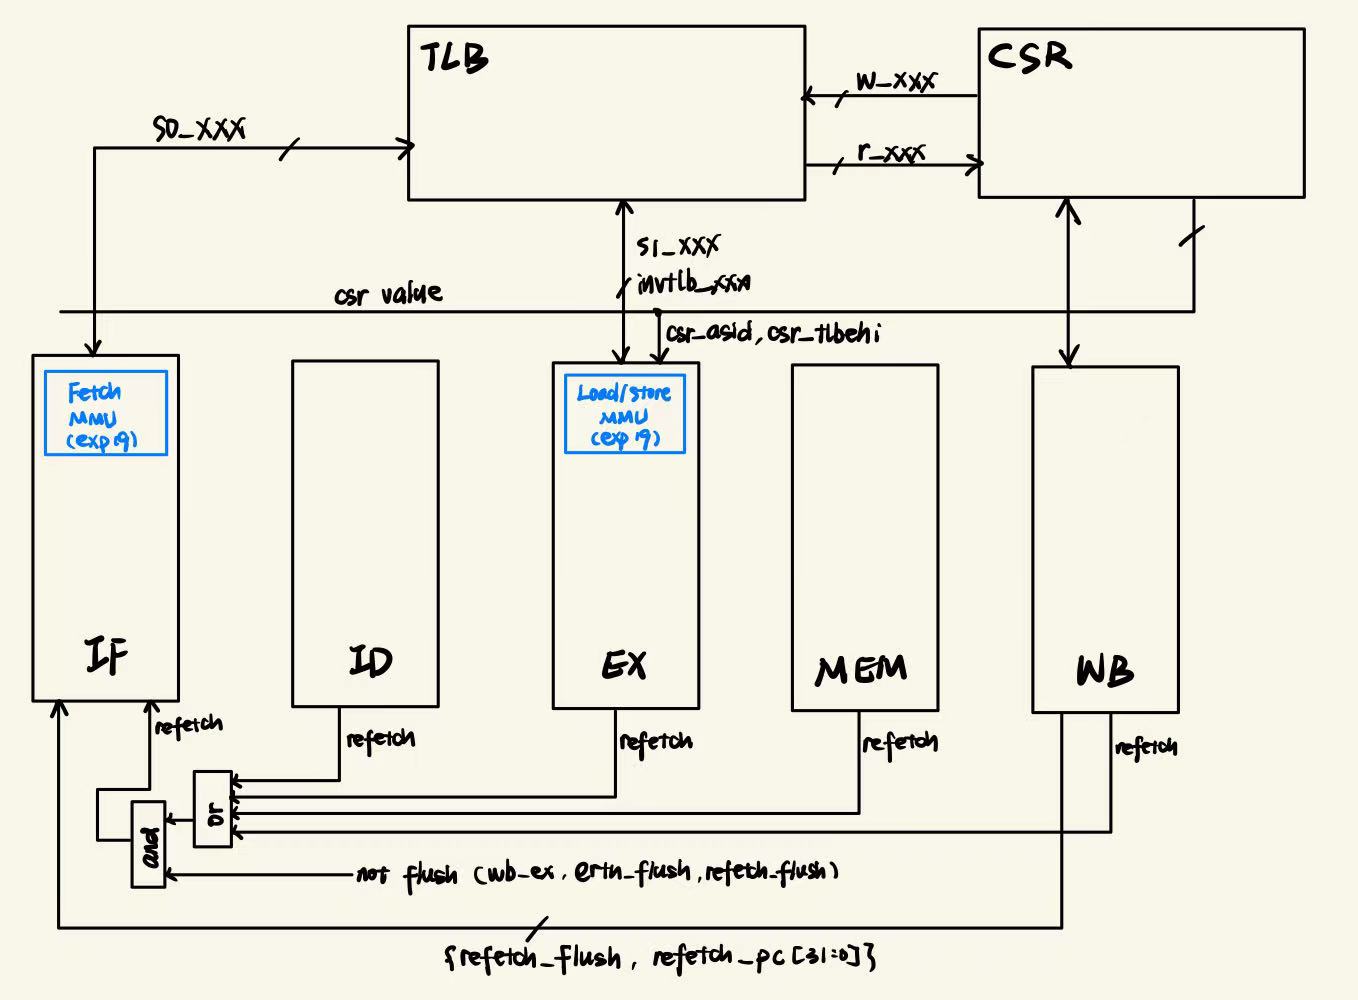 TLB
CSR
w_xxx
s0_xxx
r_xxx
s1_xxx
invtlb_xxx
csr value
csr_asid, csr_tlbehi
Fetch
MMU
(exp19)
Load/store
MMU
(exp19)
IF
ID
EX
MEM
WB
refetch
refetch
refetch
refetch
refetch
or
and
not flush (wb_ex, ertn_flush, refetch_flush)
{refetch_flush, refetch_pc[31:0]}